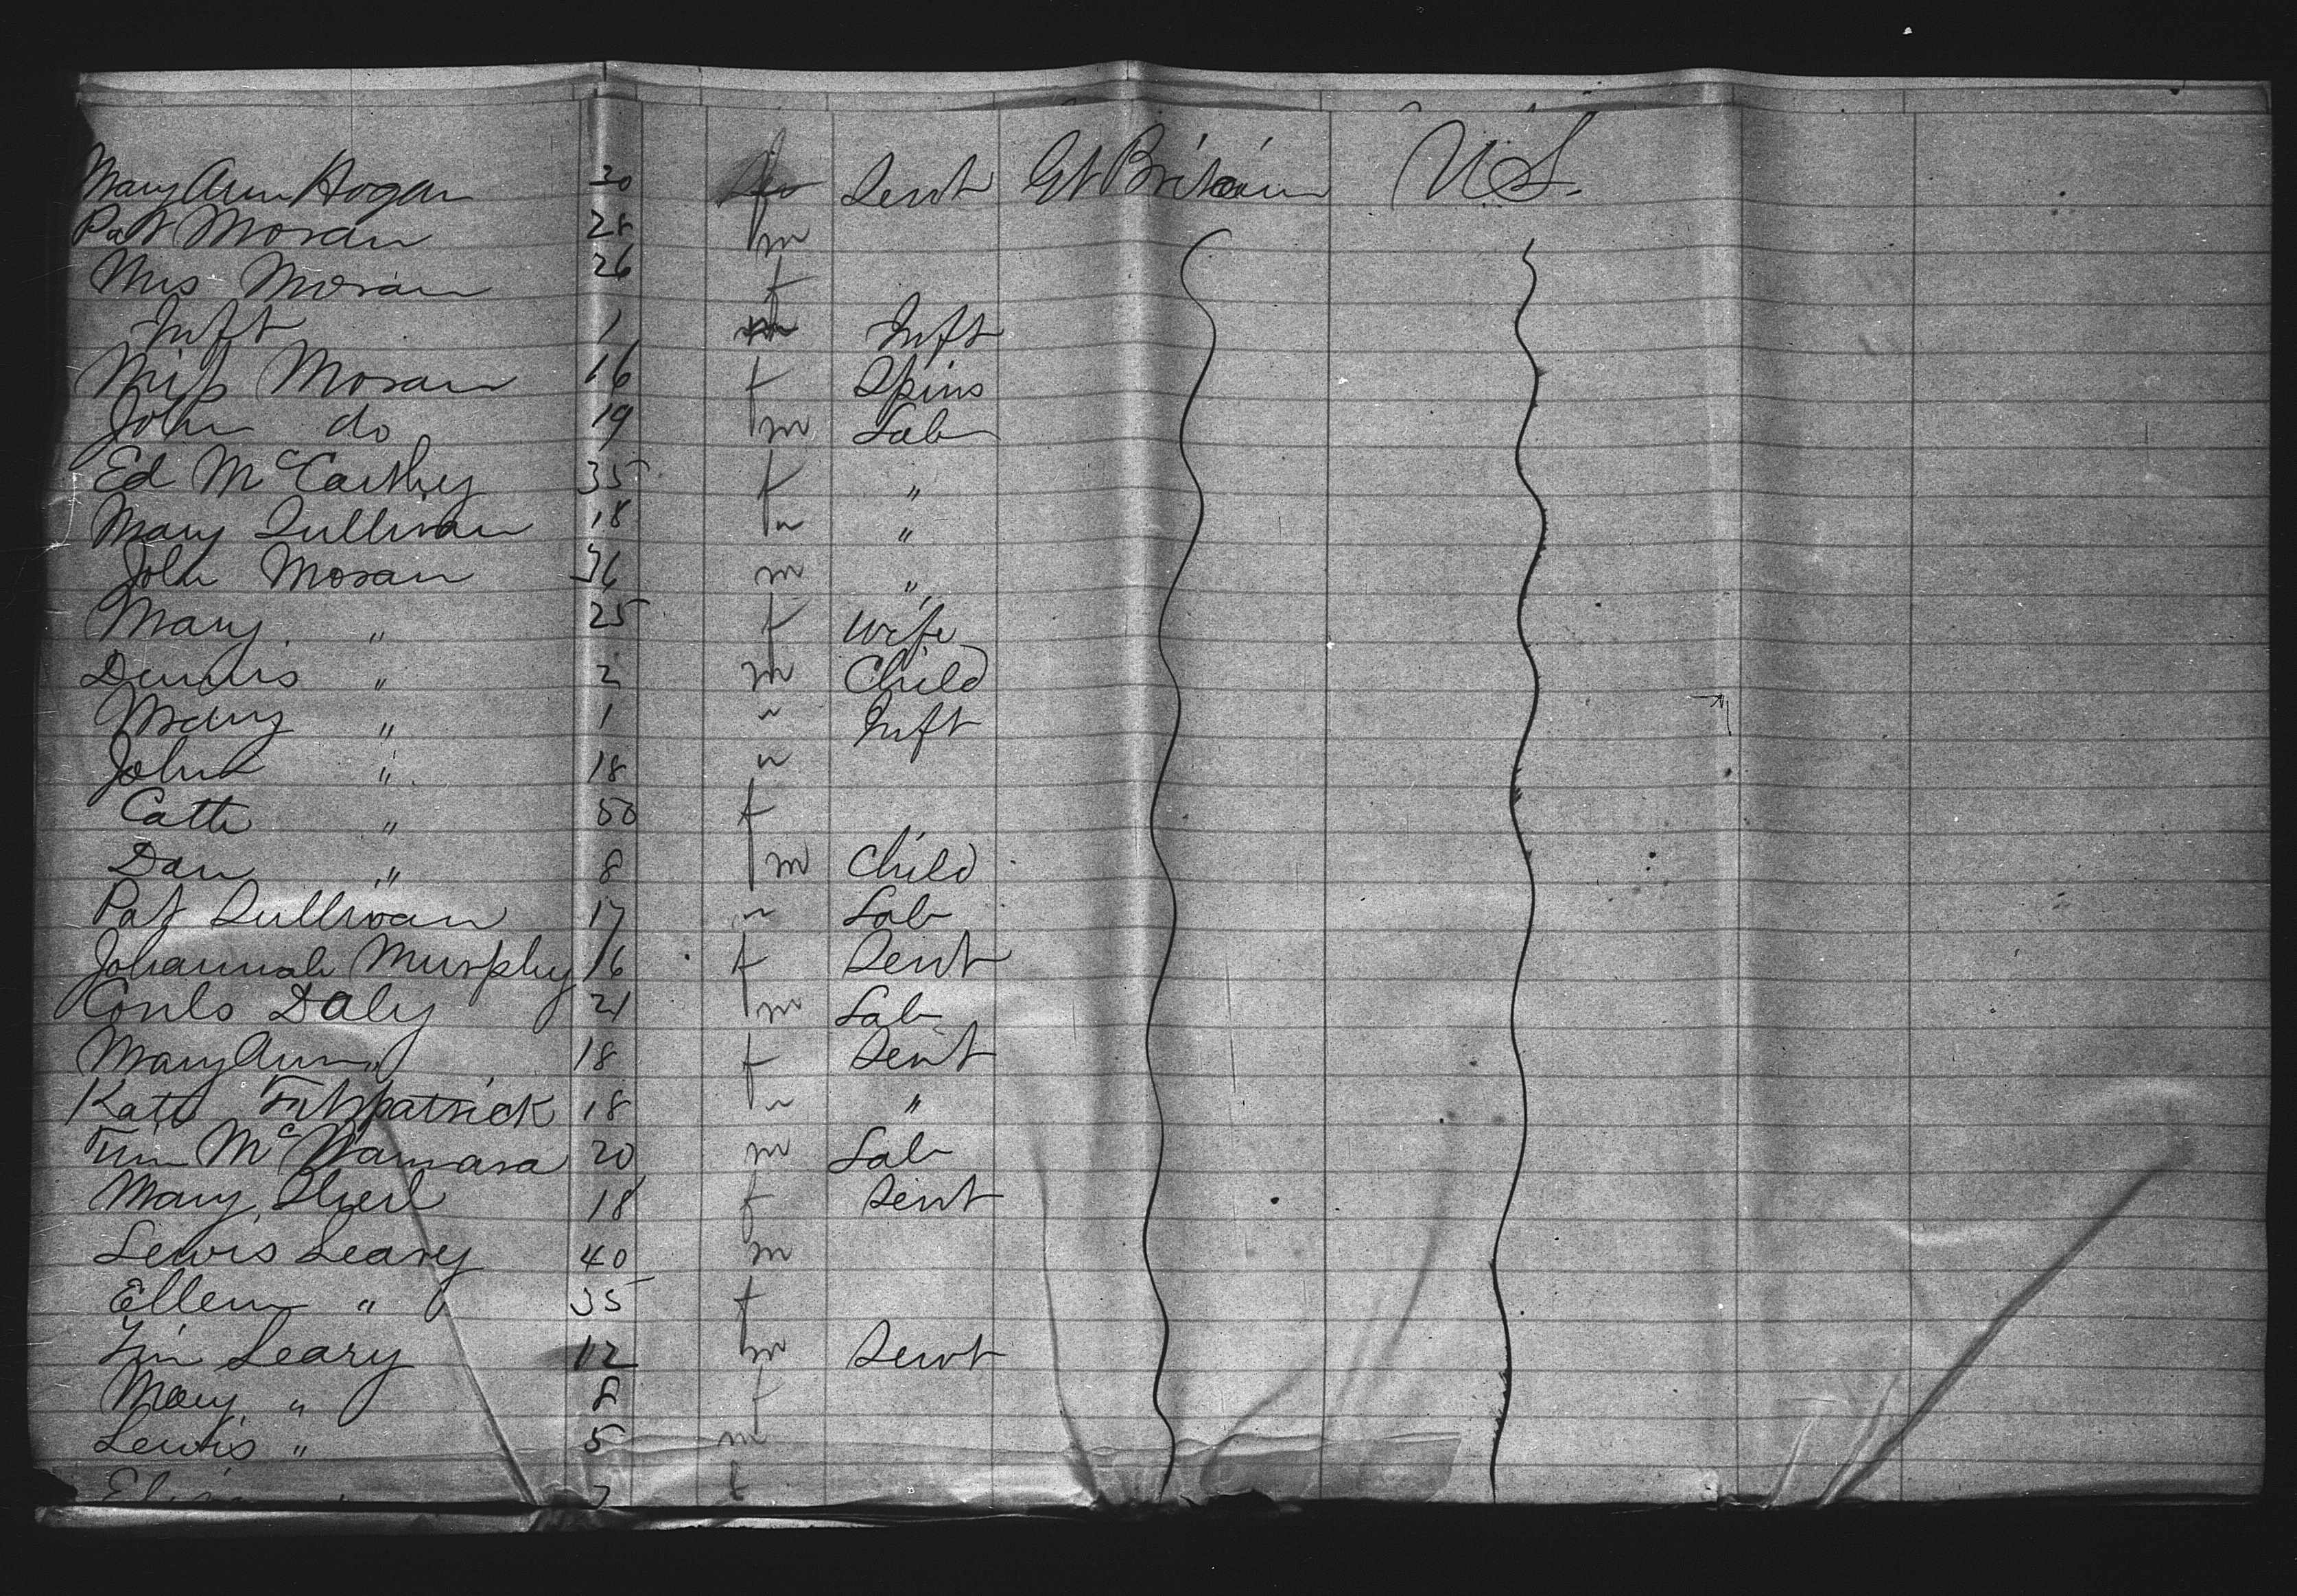 Mary Ann Hogan 20 Servt Gt Britain U S.
Pat Moran 28 m
Mrs Moran 26 f
Inft 1 Inft
Miss Moran 16 f Spins
John do 19 m Lab
Ed McCarthy 35 f "
Mary Sullivan 18 " "
John Moran 36 m "
Mary " 25 f wife
Dennis " 2 m Child
Mary " 1 " Inft
John " 18 "
Cath " 50 f
Dan " 8 m Child
Pat Sullivan 17 " Lab
Johannah Murphy 16 f Servt
Corns Daly 21 m Lab
Mary Ann " 18 f Servt
Kate Fitzpatrick 18 " "
Tim McNamara 20 m Lab
Mary 18 f Servt
Lewis Leary 40 m
Ellen " 35 f
Tim Leary 12 m Servt
Mary " 8 f
Lewis " 5 m
f